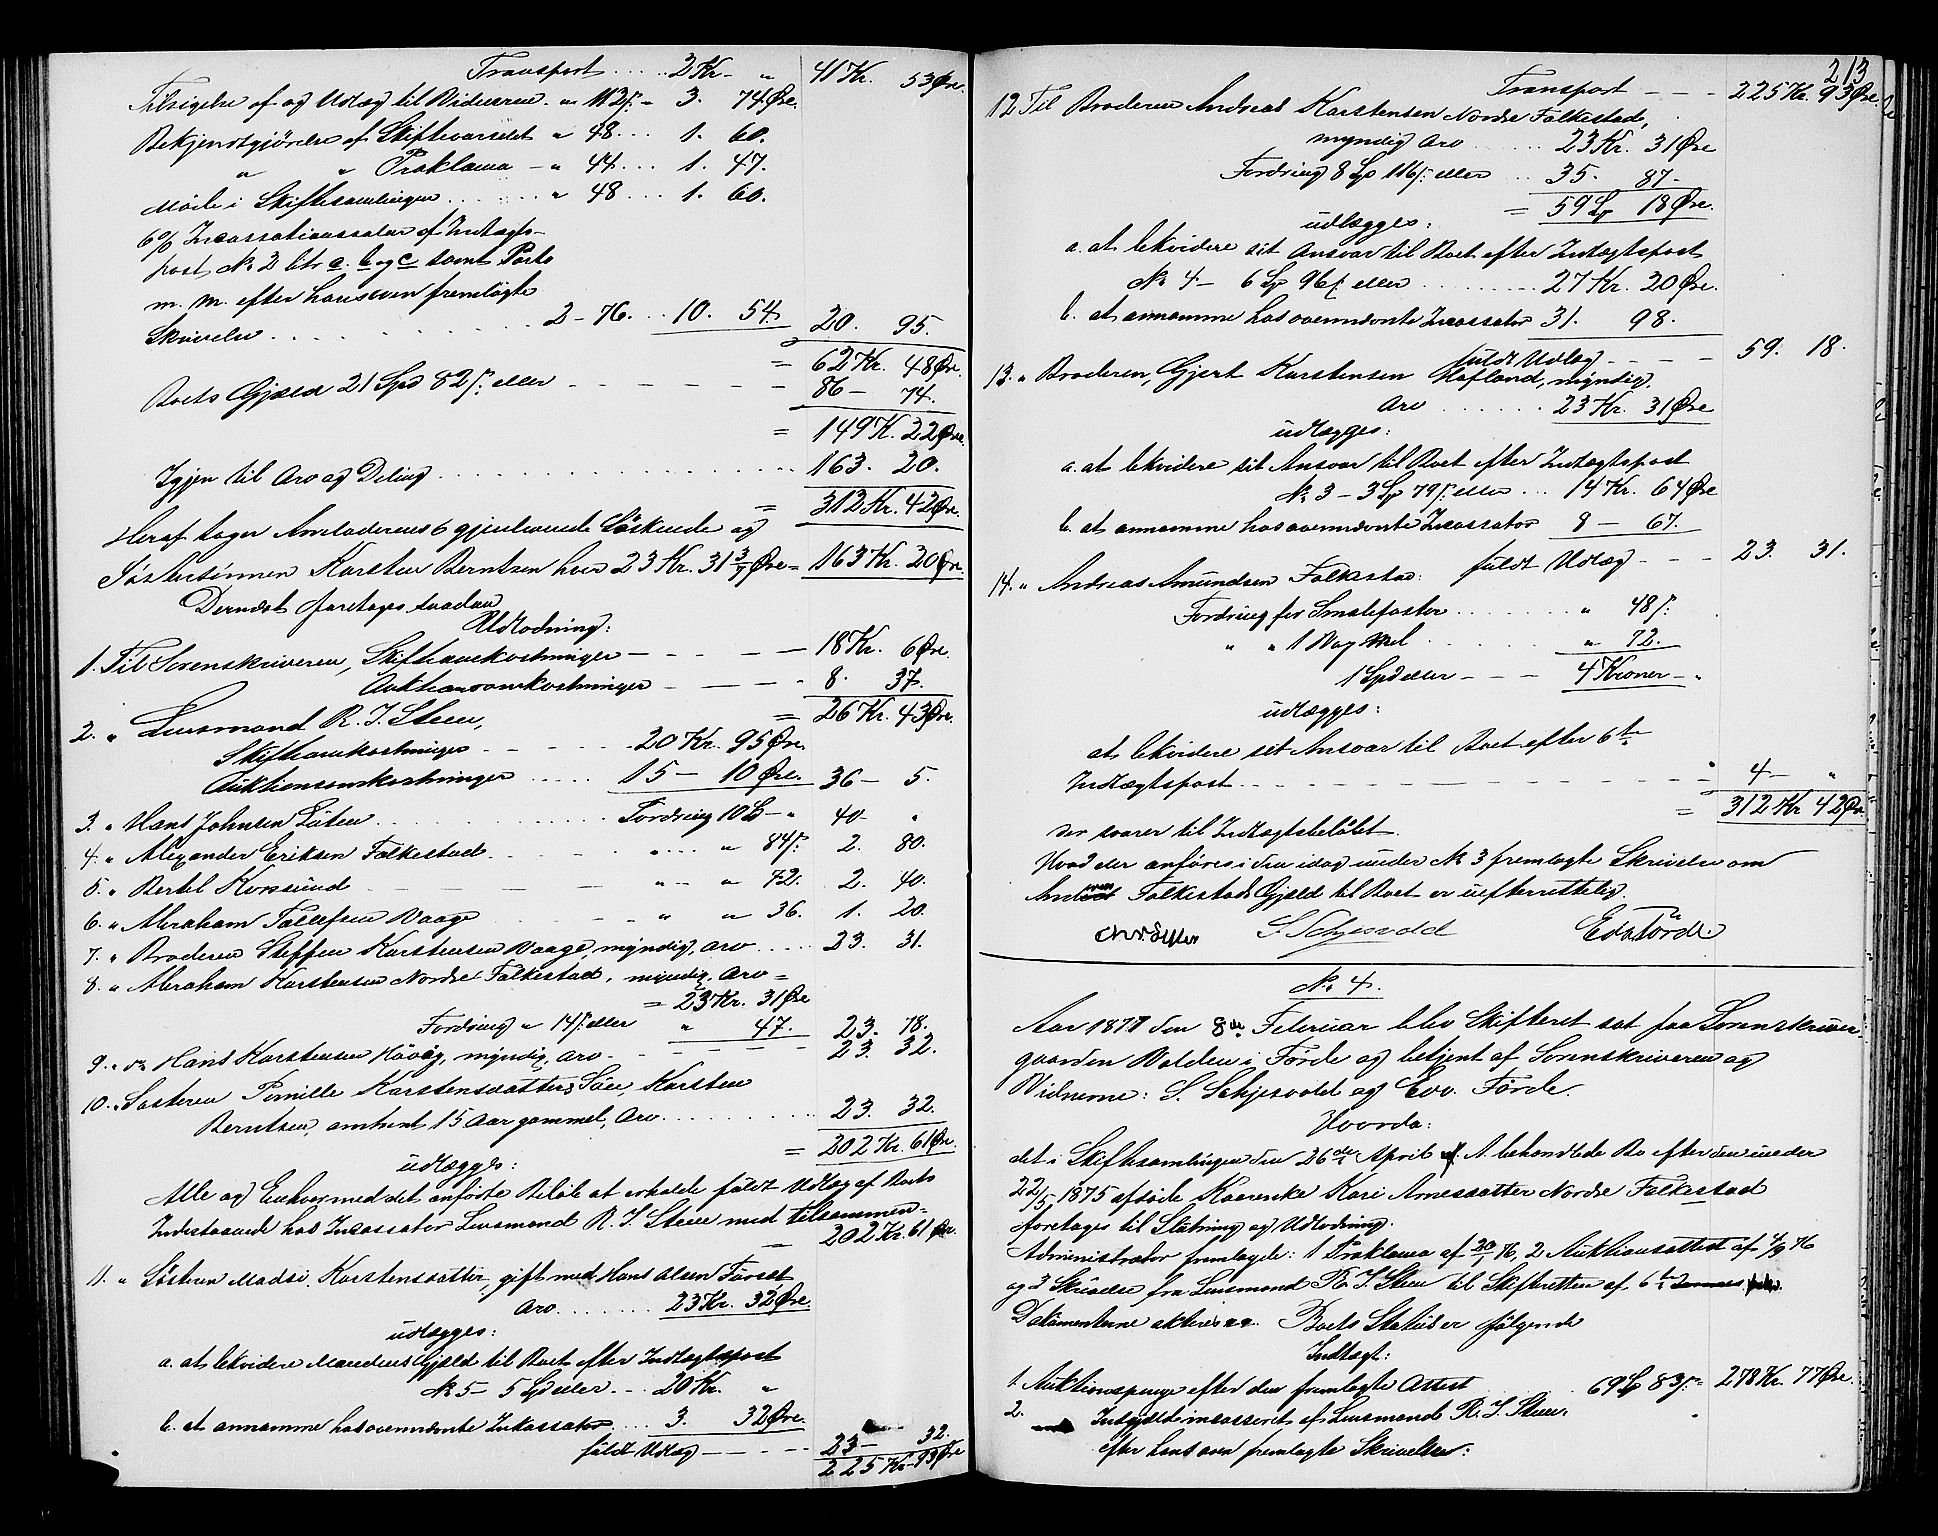 Transport . . . . 2 Kr - „ 41 Kr. 53 Øre.
Tilsigelse af og Udlæg til Vidnerne - „ 112 s. - 3. 74 Øre.
Bekjendtgjørelse af Skiftevarselet „ 48 . . . 1. 60.
„ „ Proklama - „ 44 . . . 1. 47.
Møde i Skiftesamlingen . . . . . . „ 48 . . . 1. 60.
6 % Incassationssalær af Indtægts-
post No 2 litr a. b og c samt Porto
m. m. efter hans oven fremlagte
Skrivelse . . . . 2 - 76. . . 10. 54. 20. 95.
= 62 Kr. 48 Øre.
Boets Gjæld 21 Spd 82 s. eller - - - - - 86 - 74.
= 149 K. 22 Øre.
Igjen til Arv og Deling . . . . . . 163. 20.
= 312 Kr. 42 Øre.
Heraf tager Arveladerens 6 gjenlevende Søskende og
Søstersønnen Karsten Berntsen hver 23 Kr. 31 3/7 Øre = 163 Kr. 20 Øre.
Dernæst foretages saadan
Udlodning:
1. Til Sorenskriveren, Skifteomkostninger - - - - 18 Kr. 6 Øre.
Auktionsomkostninger - - - - 8. 37.
= 26 Kr. 43 Øre.
2. „ Lensmand R. J. Steen,
Skifteomkostninger - - - - 20 Kr. 95 Øre.
Auktionsomkostninger . . . . 15 - 10 Øre. 36 - 5.
3. „ Hans Johnsen . . . . . Fordring 10 - „ 40 - „
4. „ Alexander Eriksen Folkestad . . . „ . . „ 84 s. 2. 80.
5. „ Bertel Korssund - - - - „ - - „ 72. 2. 40.
6. „ Abraham Tollefsen Vaage . . - - „ „ 36. 1. 20.
7. „ Broderen Steffen Karstensen Vaage, myndig, Arv . . . . 23. 31.
8. „ Abraham Karstensen Nordre Folkestad, myndig. Arv =
= 23 Kr. 31 Øre
Fordring „ 14 s. eller „ 47. 23. 78.
9. „ Hans Karstensen myndig, Arv - - - - - 23. 32.
10. „ Søsteren Pernille Karstensdatters Søn, Karsten
Berntsen, omtrent 15 Aar gammel, Arv . . . . . 23. 32.
= 202 Kr. 61 Øre.
udlægges:
Alle og Enhver med det anførte Beløb at erholde fuldt Udlæg af Boets
Indestaaende hos Incassator Lensmand R. J. Steen med tilsammen =
202 Kr. 61 Øre.
11. „ Søsteren Madsi Karstensdatter, gift med Hans Olsen
Arv . . . . . . 23 Kr. 32 Øre.
udlægges:
a. at likvidere Mandens Gjæld til Boet efter Indtægtspost
No 5 - 5 Spd eller . . 20 Kr. „
b. at annamme hos ovennævnte Inkassator . . . 3. 32 Øre.
fuldt Udlæg - - - - 23 - 32.
225 Kr - 93 Øre
213
Transport - - - 225 Kr. 93 Øre.
12. Til Broderen Andreas Karstensen Nordre Folkestad,
myndig Arv . . . . . 23 Kr. 31 Øre
Fordring 8 Sp 116 s. eller . . . 35. 87 -
= 59 18 Øre.
udlægges:
a. at likvidere sit Ansvar til Boet efter Indtægtspost
No 4 - 6 Sp 96 s. eller . . . . . . 27 Kr. 20 Øre.
b. at annamme hos ovennævnte Incassator 31. 98.
fuldt Udlæg - - - - 59. 18.
13. „ Broderen, Gjert Karstensen Hafland, myndig.
Arv . . . . . . 23 Kr. 31 Øre
udlægges:
a. at likvidere sit Ansvar til Boet efter Indtægtspost
No 3 - 3 Sp 79 s. eller . . . 14 Kr. 64 Øre
b. at annamme hos ovennævnte Incassator 8 - 67.
fuldt Udlæg - - - 23. 31.
14. „ Andreas Amundsen Folkestad:
Fordring for Smalefoster . . . . . . „ 48 s.
„ „ 1 Vog Mel . . . . . . „ 72.
1 Spd eller - - - 4 Kroner - „
udlægges:
at likvidere sit Ansvar til Boet efter 6te
Indtægtspost . . . . . . 4 - „
= 312 Kr 42 Øre.
der svarer til Indtægtsbeløbet.
Hvad der anføres i den idag under No 3 fremlagte Skrivelse om
Folkestads Gjæld til Boet er uefterrettelig.
S. Schjesvold Edv Førde.
No 4.
Aar 1877 den 8de Februar blev Skifteret sat paa Sorenskriver-
gaarden Valden i Førde og betjent af Sorenskriveren og
Vidnerne: S. Schjesvold og Edv. Førde.
Hvorda:
det i Skiftesamlingen den 26de April behandlede Bo efter den under
22/5 1875 afdøde Kaarenke Kari Arnesdatter Nordre Folkestad
foretages til Slutning og Udlodning.
Administrator fremlagde: 1 Proklama af 20/1 76, 2 Auktionsattest af 4/9 76
og 3 Skrivelse fra Lensmand R. J. Steen til Skifteretten af 6te
Dokumenterne akteres. Boets Status er følgende
Indtægt:
1. Auktionspenge efter den fremlagte Attest 69 Sp 83 s. = 278 Kr. 77 Øre.
2. Indgjæld incasseret af Lensmand R. J. Steen
efter hans oven fremlagte Skrivelse: